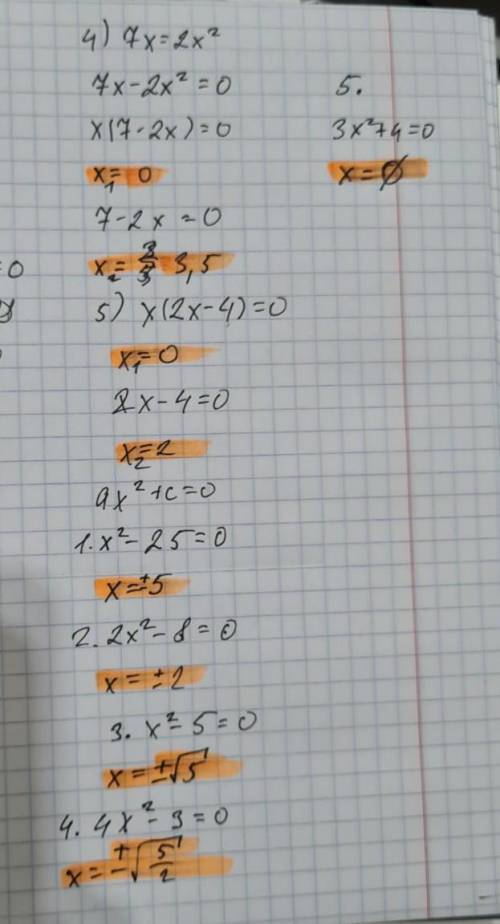 4) 7x=2x²
7x-2x²=0
x(7-2x)=0
x₁=0
7-2x=0
x₂= 3,5
5) x(2x-4)=0
x₁=0
2x-4=0
x₂=2
ax²+c=0
1. x²-25=0
x=±5
2. 2x²-8=0
x=±2
3. x²-5=0
x=±√5
4. 4x²-3=0
x=±√(5/2)
5.
3x²+4=0
x=∅
=0